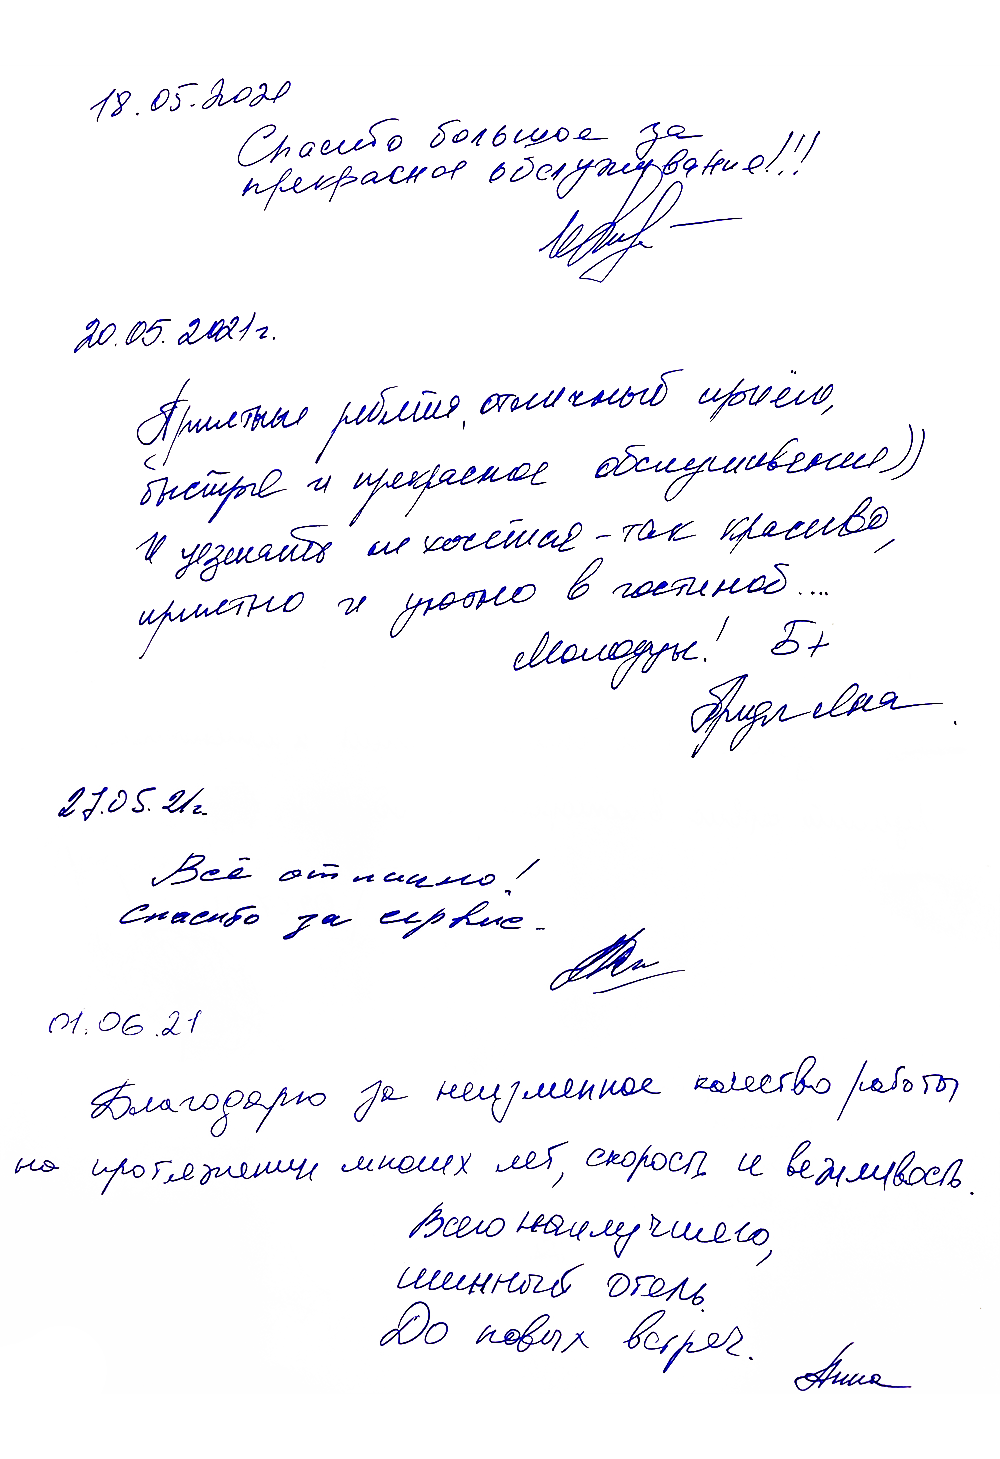 18.05.2021
Спасибо большое за
прекрасное обслуживание!!!
20.05.2021г.
Приятные ребята, отличный приём,
быстрые и прекрасное обслуживание))
И уезжать не хочется - так красиво,
приятно и уютно в гостиной...
Молодцы! 5+
Яна
27.05.21г.
Всё отлично!
Спасибо за сервис.
01.06.21
Благодарю за неизменное качество работы
на протяжении многих лет, скорость и вежливость.
Всего наилучшего,
шинный отель.
До новых встреч.
Анна